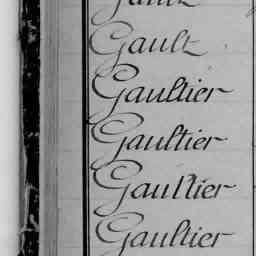 Gault
Gault
Gaultier
Gaultier
Gaultier
Gaultier